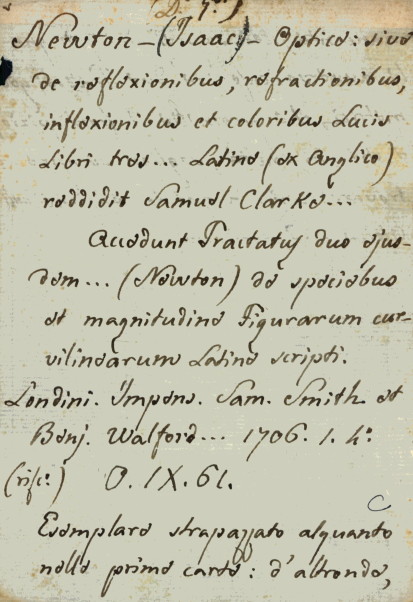 Newton - (Isaac) - Optice: sive
de reflexionibus, refractionibus,
inflexionibus et coloribus Lucis
Libri tres... Latine (ex Anglico)
reddidit Samuel Clarke...
Accedunt Tractatus duo ejus-
dem... (Newton) de speciebus
et magnitudine Figurarum cur-
vilinearum Latine scripti.
Londini. Impens. Sam. Smith et
Benj. Walford... 1706. 1. 4°.
O. IX. 61.
C
Esemplare strapazzato alquanto
nelle prime carte: d'altronde,